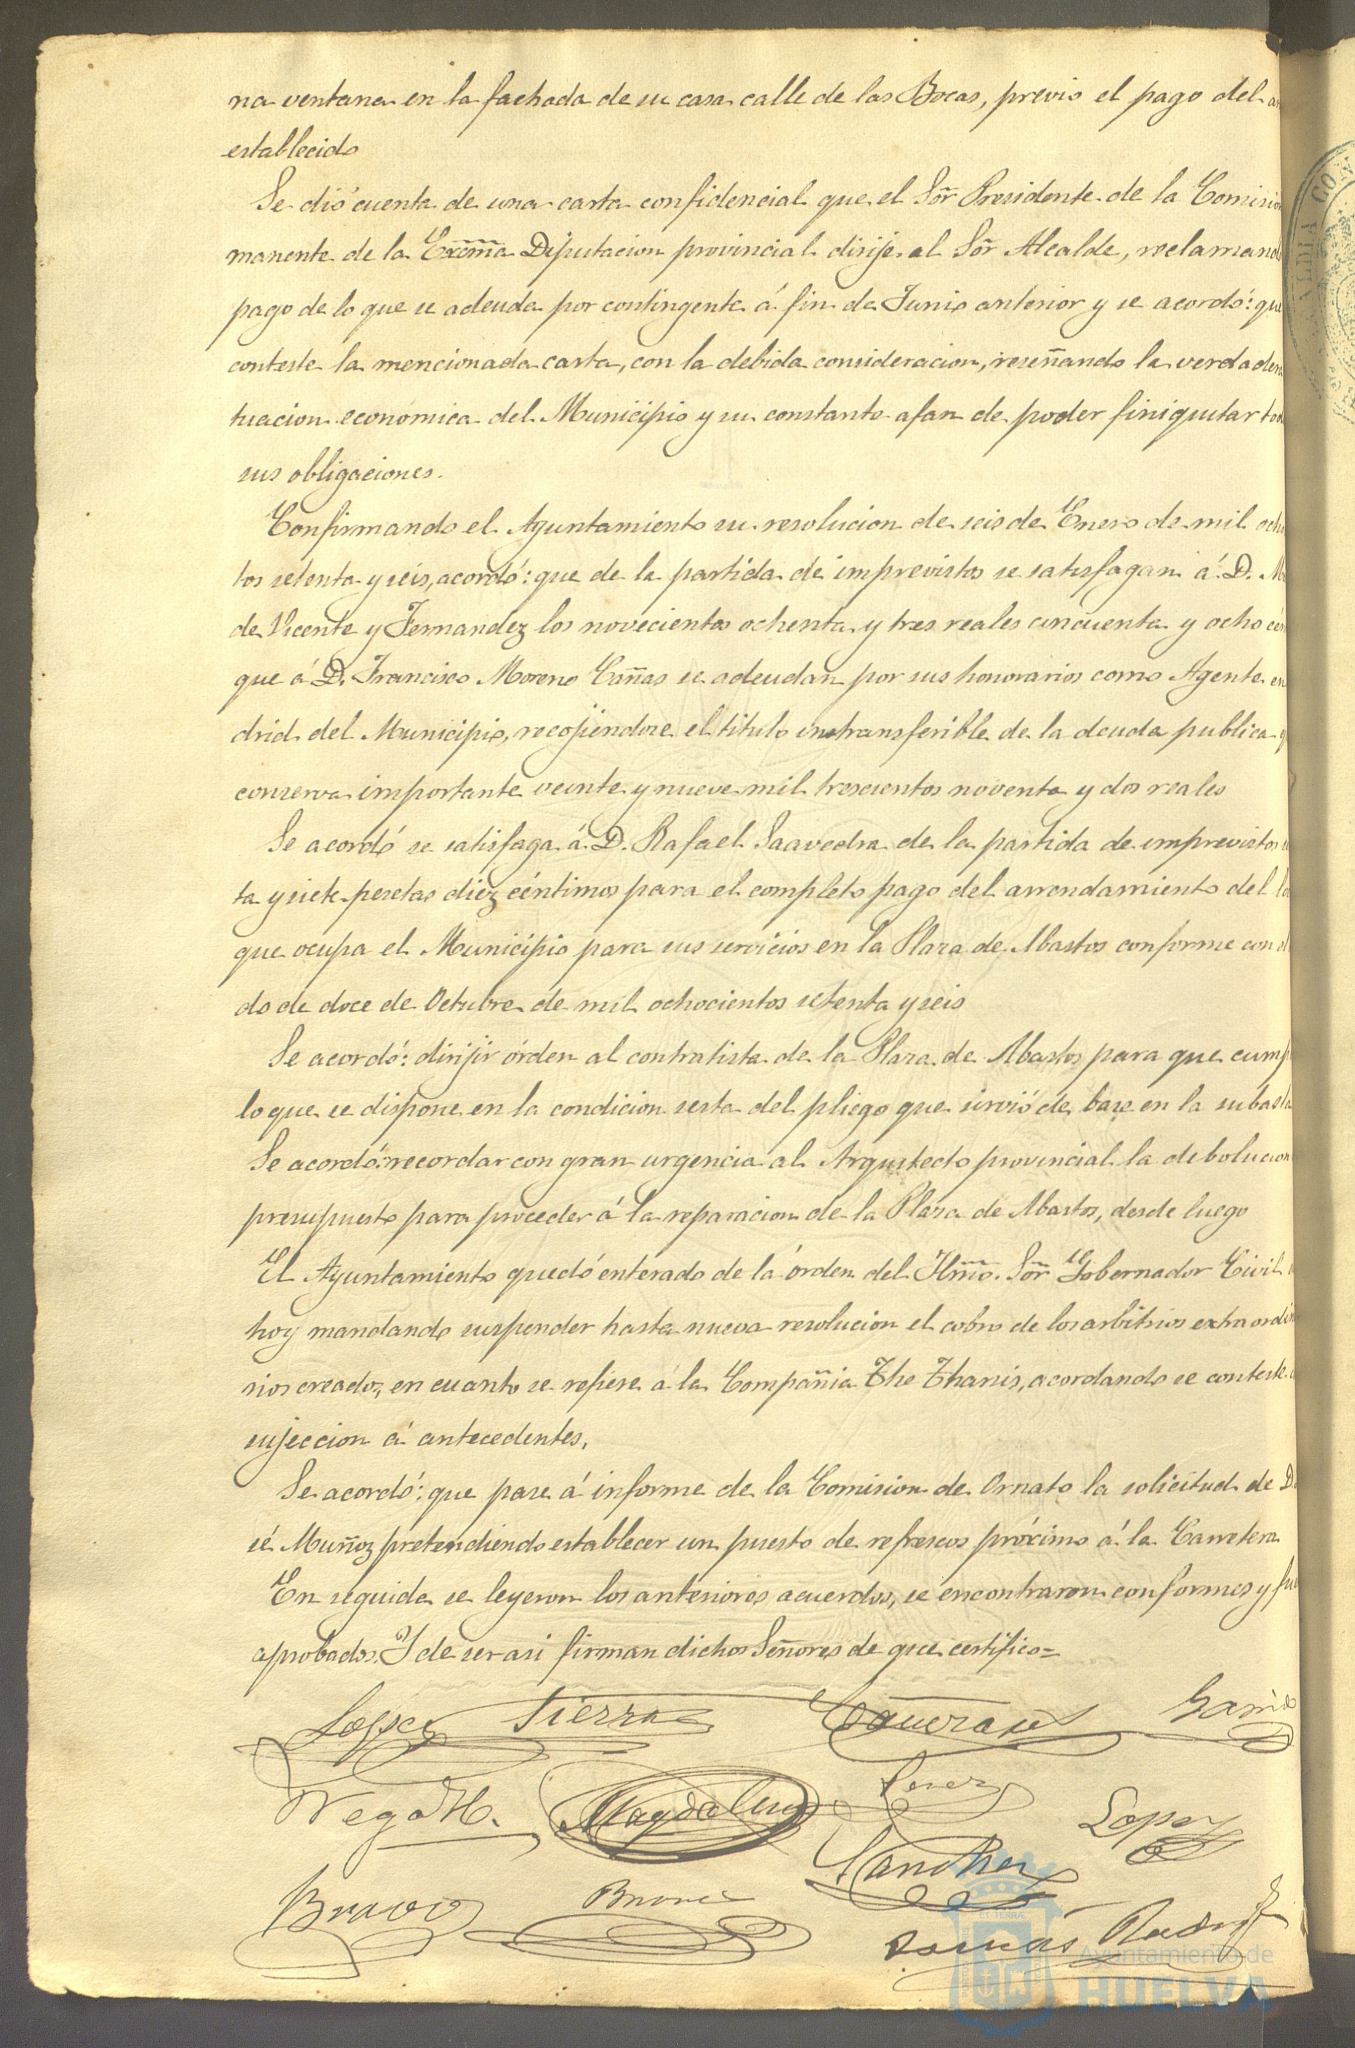 na ventana en la fachada de su casa calle de las Bocas, previo el pago del
establecido
Se dió cuenta de una carta confidencial que el Sõr Presidente de la Comision
manente de la Excm̃a Diputacion provincial dirije al Sõr Alcalde, reclamando
pago de lo que se adeuda por contingente á fin de Junio anterior y se acordó: que
conteste la mencionada carta, con la debida consideracion, reseñando la verdader
tuacion económica del Municipio y su constante afan de poder finiquitar tod
sus obligaciones.
Confirmando el Ayuntamiento su resolucion de seis de Enero de mil ocho
tos setenta y seis, acordó: que de la partida de imprevistos se satisfagan á D. M
de Vicente y Fernandez los novecientos ochenta y tres reales cincuenta y ocho cén
que á D. Francisco Moreno Cañas se adeudan por sus honorarios como Agente en
drid del Municipio, recojiéndose el titulo intransferible de la deuda publica q
conserva importante veinte y nueve mil trescientos noventa y dos reales
Se acordó se satisfaga á D. Rafael Saavedra de la partida de imprevistos
ta y siete pesetas diez céntimos para el completo pago del arrendamiento del lo
que ocupa el Municipio para sus servicios en la Plaza de Abastos conforme con el
do de doce de Octubre de mil ochocientos setenta y seis
Se acordó: dirijir órden al contratista de la Plaza de Abastos para que cump
lo que se dispone en la condicion sesta del pliego que sirvió de base en la subasta
Se acordó: recordar con gran urgencia al Arquitecto provincial la debolucion
presupuesto para proceder á la reparacion de la Plaza de Abastos, desde luego
El Ayuntamiento quedó enterado de la órden del Ilm̃o. Sõr Gobernador Civil
hoy mandando suspender hasta nueva resolucion el cobro de los arbitrios extraordin
rios creados, en cuanto se refiere á la Compañia The Tharsis, acordando se conteste
sujeccion á antecedentes.
Se acordó: que pase á informe de la Comision de Ornato la solicitud de D
sé Muñoz pretendiendo establecer un puesto de refrescos próximo á la Carretera
En seguida se leyeron los anteriores acuerdos, se encontraron conformes y fue
aprobados. Y de ser asi firman dichos Señores de que certifico=
Lopez Tierra Garrido
Vega M. Magdalena Perez Lopez
Bravo Sanchez
Tomás
Ayuntamiento de
HUELVA